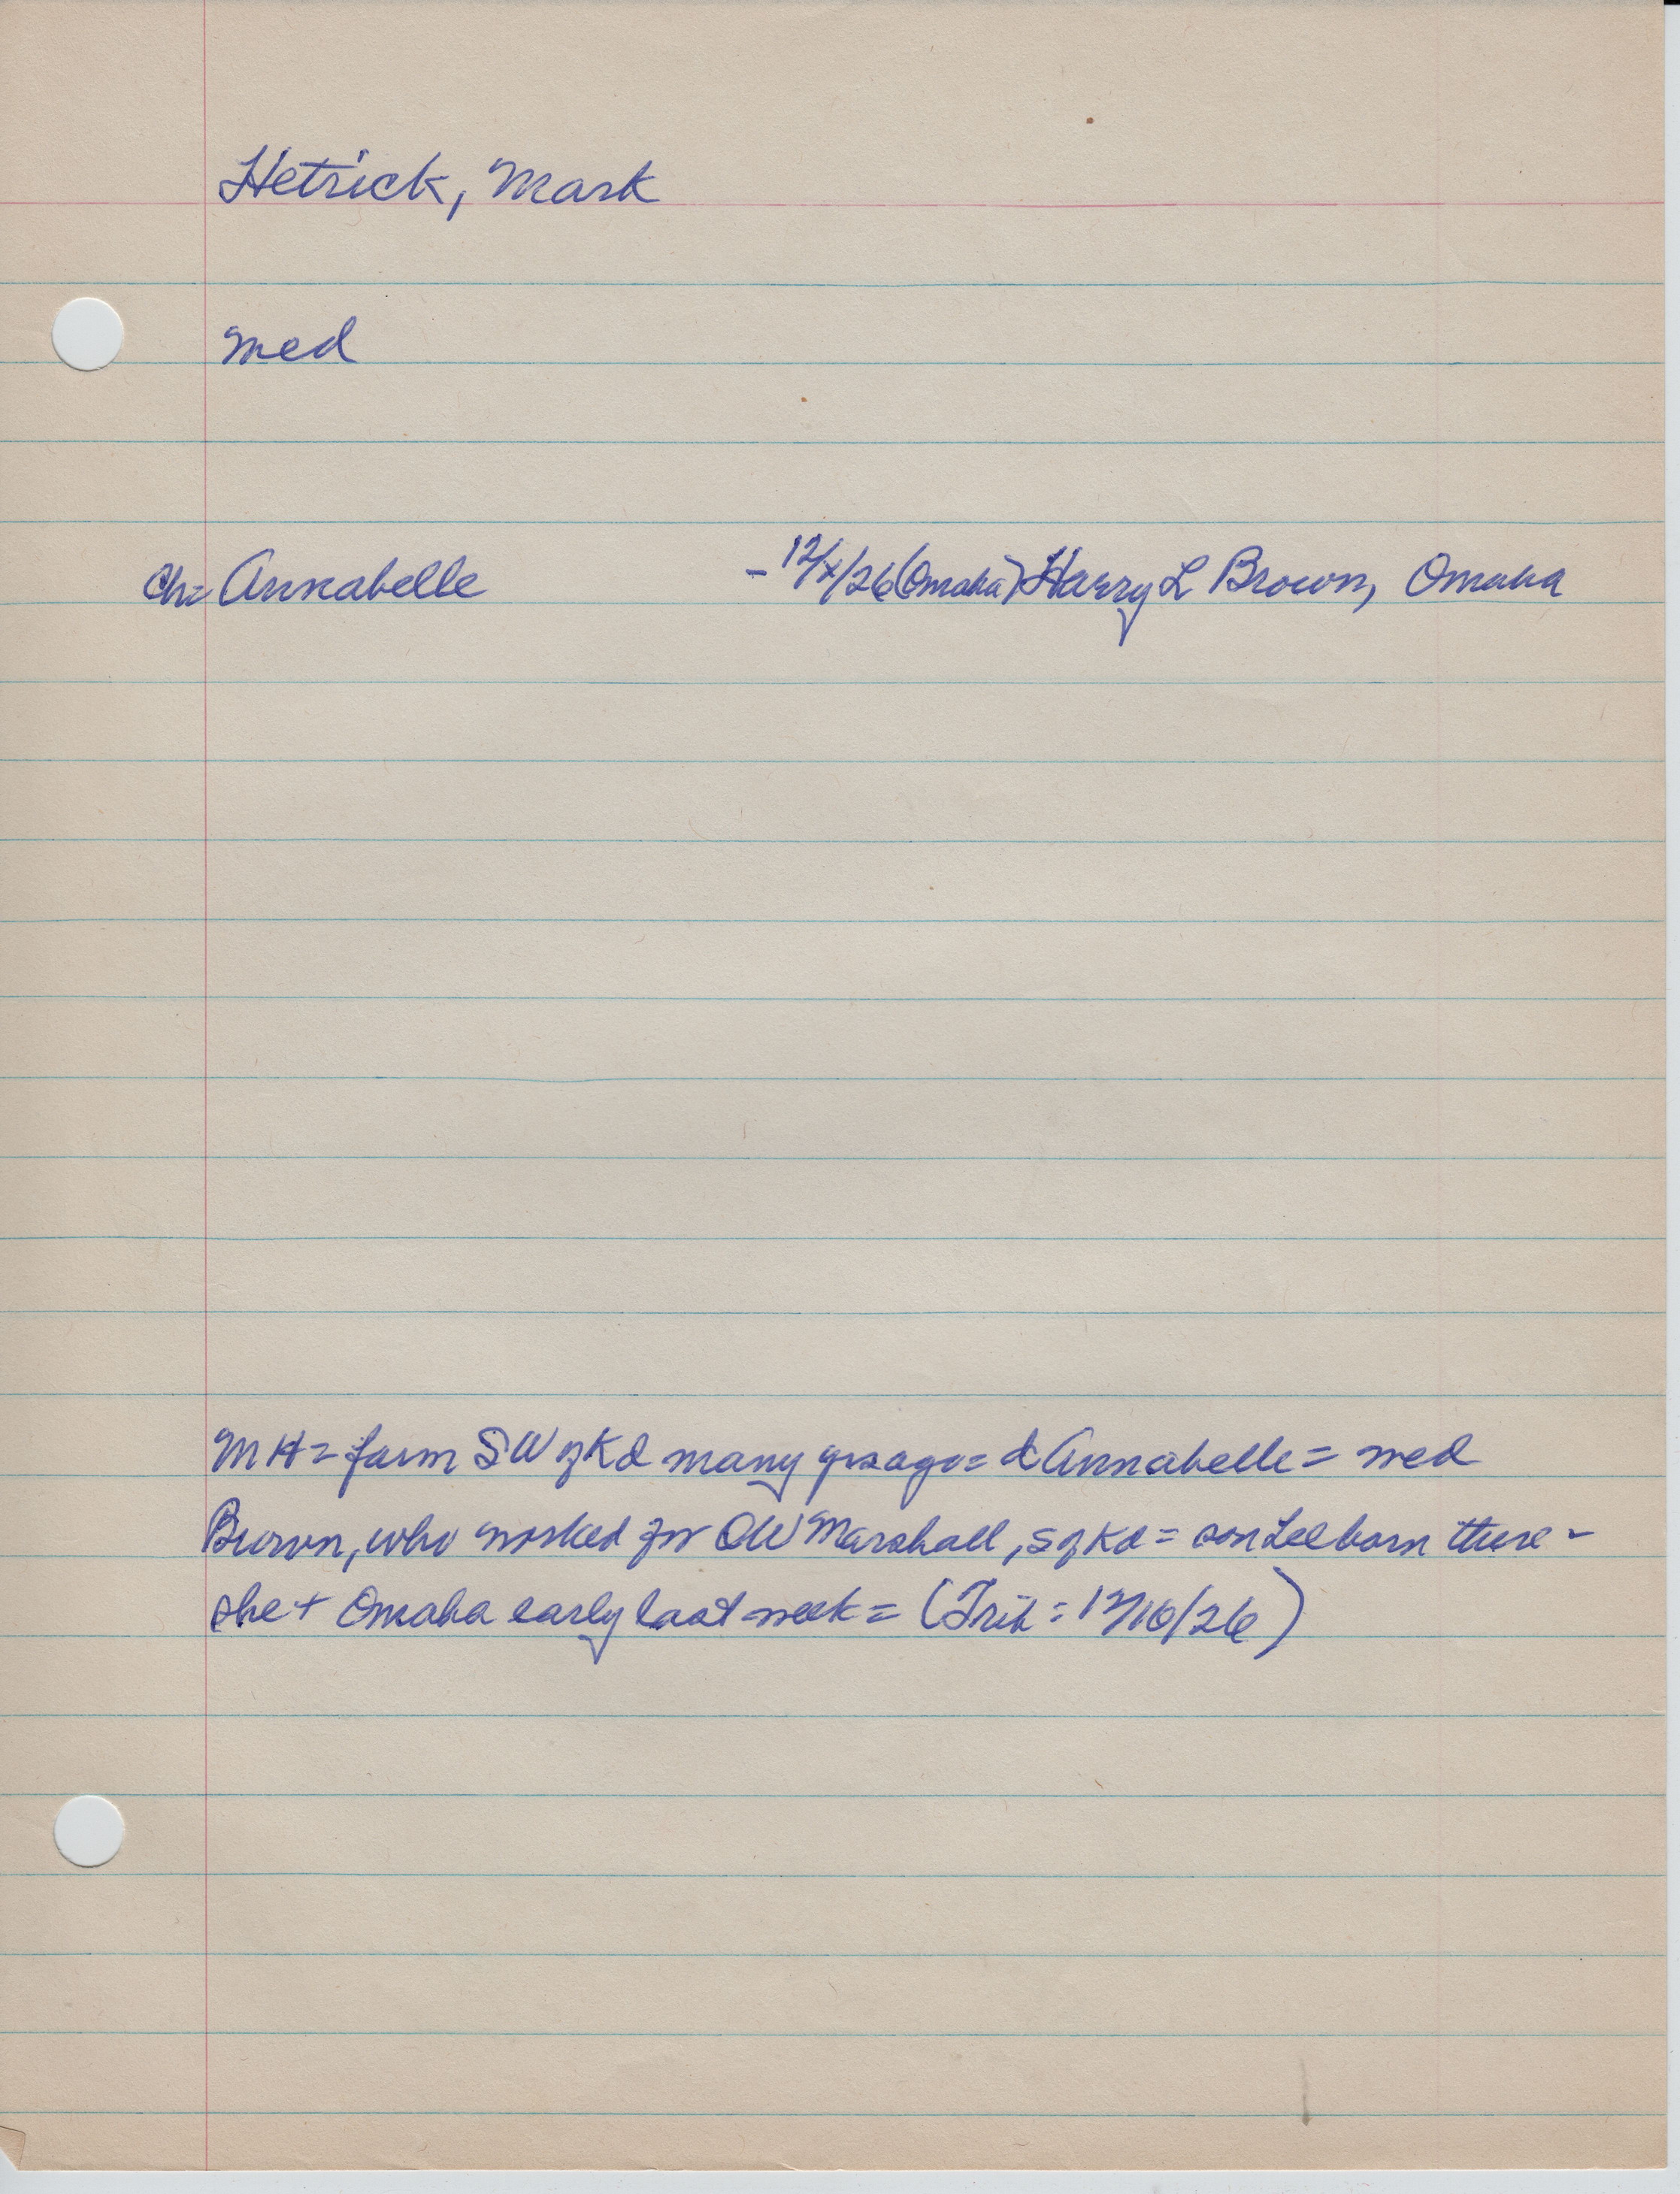 Hetrick, Mark
med
Ch= Annabelle - 12/x/26 (Omaha) Harry L Brown, Omaha
MH = farm SW of Kd many yrs ago = d Annabelle = med
Brown, who worked for OW Marshall, S of Kd = son Lee born there -
she + Omaha early last week = (Trib: 12/10/26)